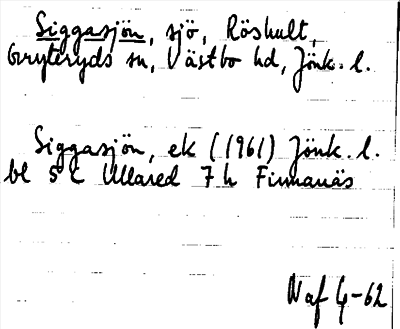 Siggasjön, sjö, Röshult,
Gryteryds sn, Västbo hd, Jönk. l.
Siggasjön, ek (1961) Jönk. l.
bl 5 C Ullared 7 h Finnanäs
Naf 4-62